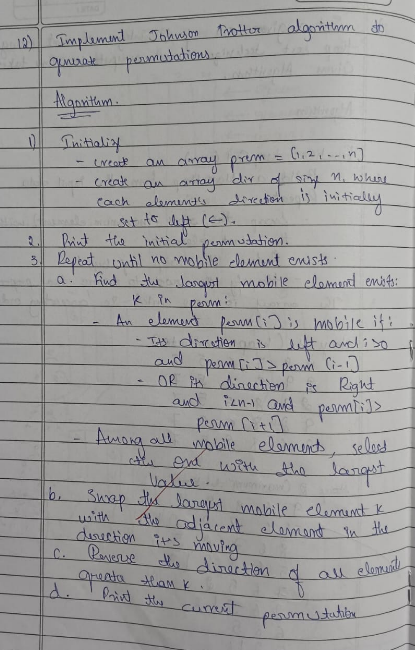 12) Implement Johnson Trotter algorithm to
generate permutations.
Algorithm.
1) Initialize
- create an array prem = [1,2,...,n]
- create an array dir of size n, where
each element's direction is initially
set to left (←).
2. Print the initial permutation.
3. Repeat until no mobile element exists.
a. Find the largest mobile element exists:
K in perm:
- An element perm[i] is mobile if:
- Its direction is left and i>0
and perm[i]> perm [i-1]
- OR its direction is Right
and i<n-1 and perm[i]>
perm [i+1]
- Among all mobile elements, select
the one with the largest
Value.
b. Swap the largest mobile element K
with the adjacent element in the
direction it's moving
c. Reverse the direction of all elements
greater than K.
d. Print the current permutation